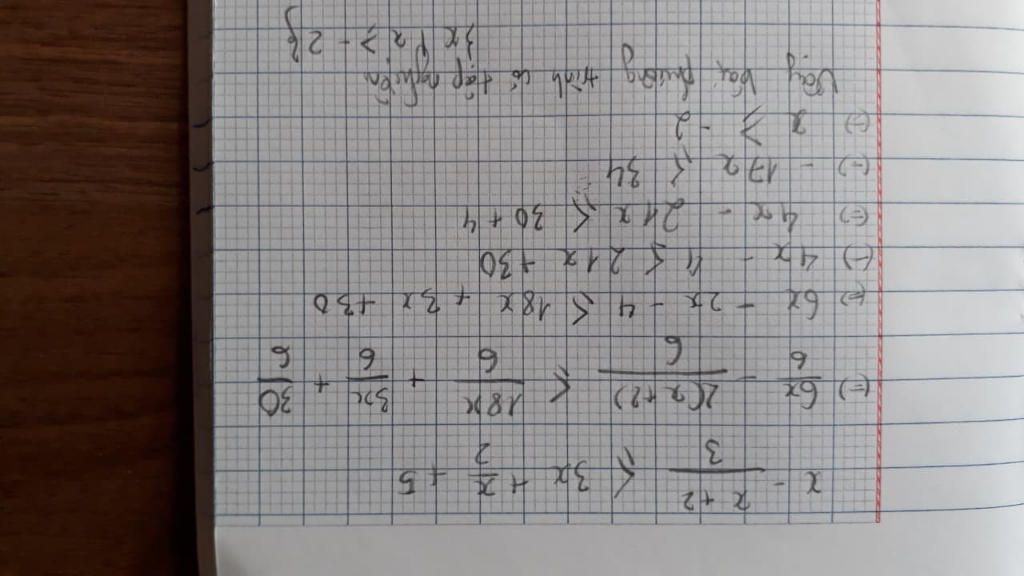 x - (x+2)/3 ≤ 3x + x/2 + 5
(=) 6x/6 - 2(x+2)/6 ≤ 18x/6 + 3x/6 + 30/6
(=) 6x - 2x - 4 ≤ 18x + 3x + 30
(=) 4x - 4 ≤ 21x + 30
(=) 4x - 21x ≤ 30 + 4
(=) - 17x ≤ 34
(=) x ≥ - 2
Vậy bất phương trình có tập nghiệm
{x | x ≥ - 2}